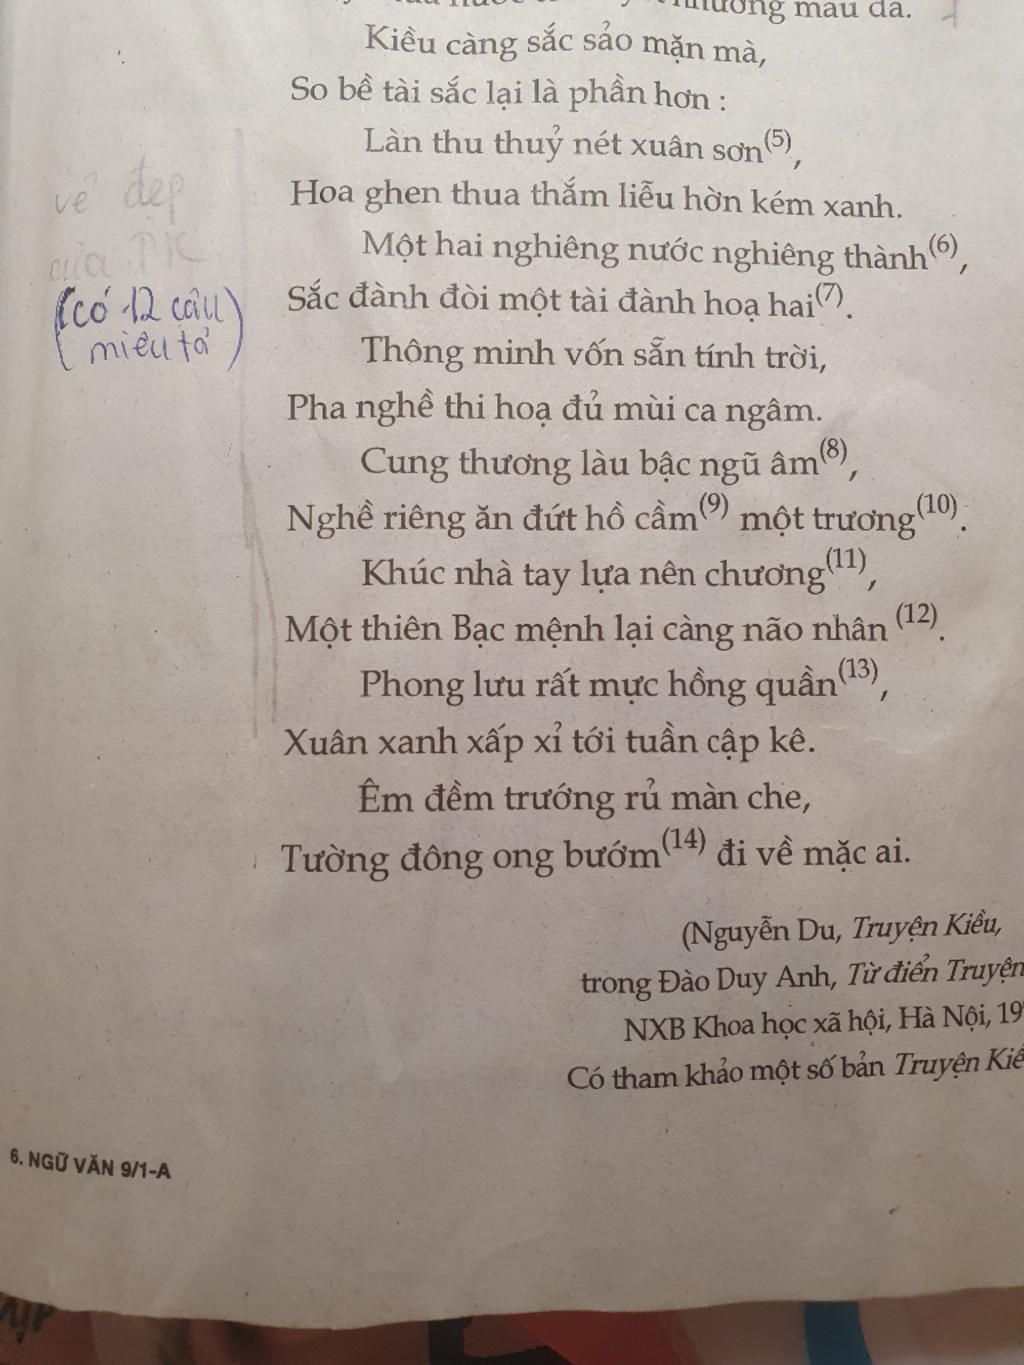 nhường màu da.
Kiều càng sắc sảo mặn mà,
So bề tài sắc lại là phần hơn :
Làn thu thuỷ nét xuân sơn(5),
Hoa ghen thua thắm liễu hờn kém xanh.
Một hai nghiêng nước nghiêng thành(6),
Sắc đành đòi một tài đành hoạ hai(7).
Thông minh vốn sẵn tính trời,
Pha nghề thi hoạ đủ mùi ca ngâm.
Cung thương làu bậc ngũ âm(8),
Nghề riêng ăn đứt hồ cầm(9) một trương(10).
Khúc nhà tay lựa nên chương(11),
Một thiên Bạc mệnh lại càng não nhân (12).
Phong lưu rất mực hồng quần(13),
Xuân xanh xấp xỉ tới tuần cập kê.
Êm đềm trướng rủ màn che,
Tường đông ong bướm(14) đi về mặc ai.
vẻ đẹp
của TK
(có 12 câu
miêu tả)
(Nguyễn Du, Truyện Kiều,
trong Đào Duy Anh, Từ điển Truyện
NXB Khoa học xã hội, Hà Nội, 19
Có tham khảo một số bản Truyện Kiề
6. NGỮ VĂN 9/1-A